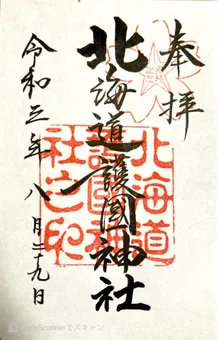 奉拝
北海道護國神社
令和三年八月二十九日
北海道
護國神
社之印
CamScannerでスキャン